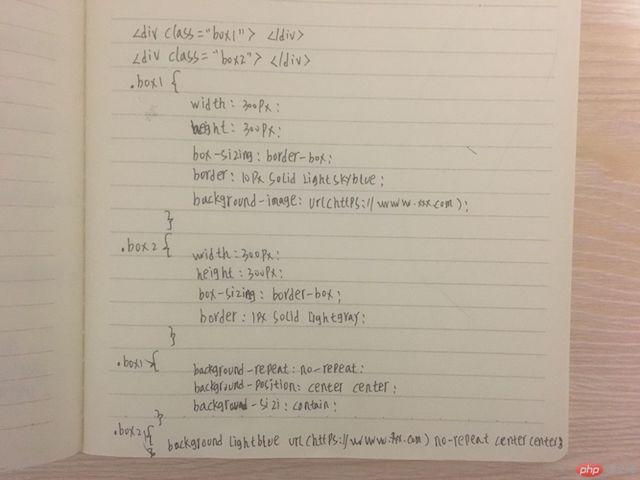 <div class="box1"> </div>
<div class="box2"> </div>
.box1 {
width: 300px;
height: 300px;
box-sizing: border-box;
border: 10px solid lightskyblue;
background-image: url(https://www.xxx.com);
}
.box2 {
width: 300px;
height: 300px;
box-sizing: border-box;
border: 1px solid lightgray;
}
.box1 {
background-repeat: no-repeat;
background-position: center center;
background-sizi: contain;
}
.box2 {
background lightblue url(https://www.xxx.com) no-repeat center center;
}
php